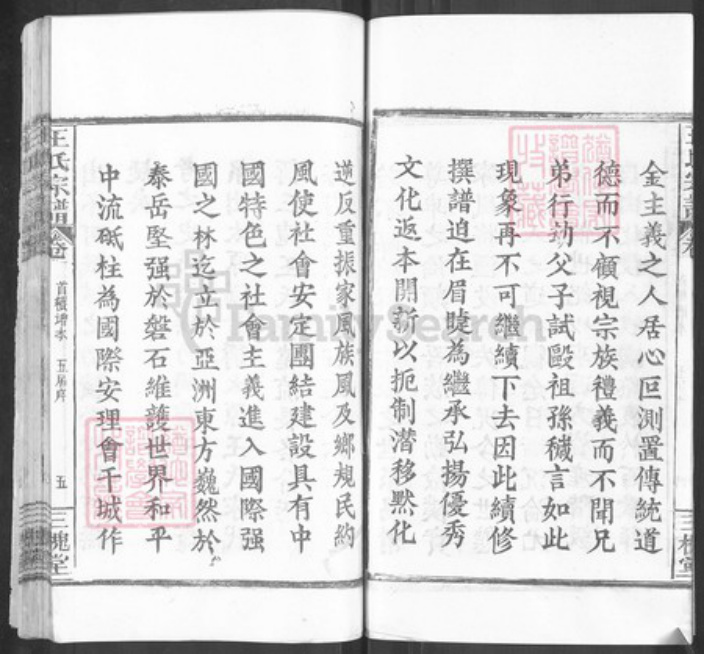 金主義之人居心叵測置傳統道
德而不顧視宗族禮義而不聞兄
弟行劫父子試毆祖孫穢言如此
現象再不可繼續下去因此續修
撰譜迫在眉睫為繼承弘揚優秀
文化返本開新以扼制潛移默化
逆反重振家風族風及鄉規民約
風使社會安定團結建設具有中
國特色之社會主義進入國際强
國之林迄立於亞洲東方巍然於
泰岳堅强於磐石維護世界和平
中流砥柱為國際安理會干城作
王氏宗譜
卷一
首續增本
五屆序
五
三槐堂
FamilySearch